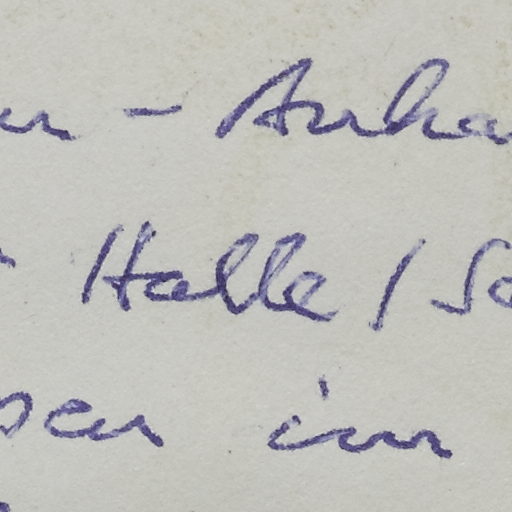 - Anha
Halle / Sa
sen im